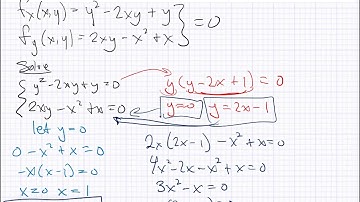 fx(x,y) = y² - 2xy + y
fy(x,y) = 2xy - x² + x } = 0
Solve
{ y² - 2xy + y = 0 → y(y - 2x + 1) = 0
2xy - x² + x = 0 ← y = 0 y = 2x - 1
let y = 0
0 - x² + x = 0
-x(x - 1) = 0
x = 0 x = 1
2x(2x - 1) - x² + x = 0
4x² - 2x - x² + x = 0
3x² - x = 0